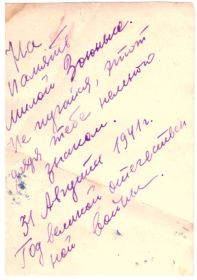 На
память
милой Зоюньке.
Не пугайся, этот
дядя тебе немного
знаком.
31 Августа 1941 г.
Год великой отечествен
ной войны.